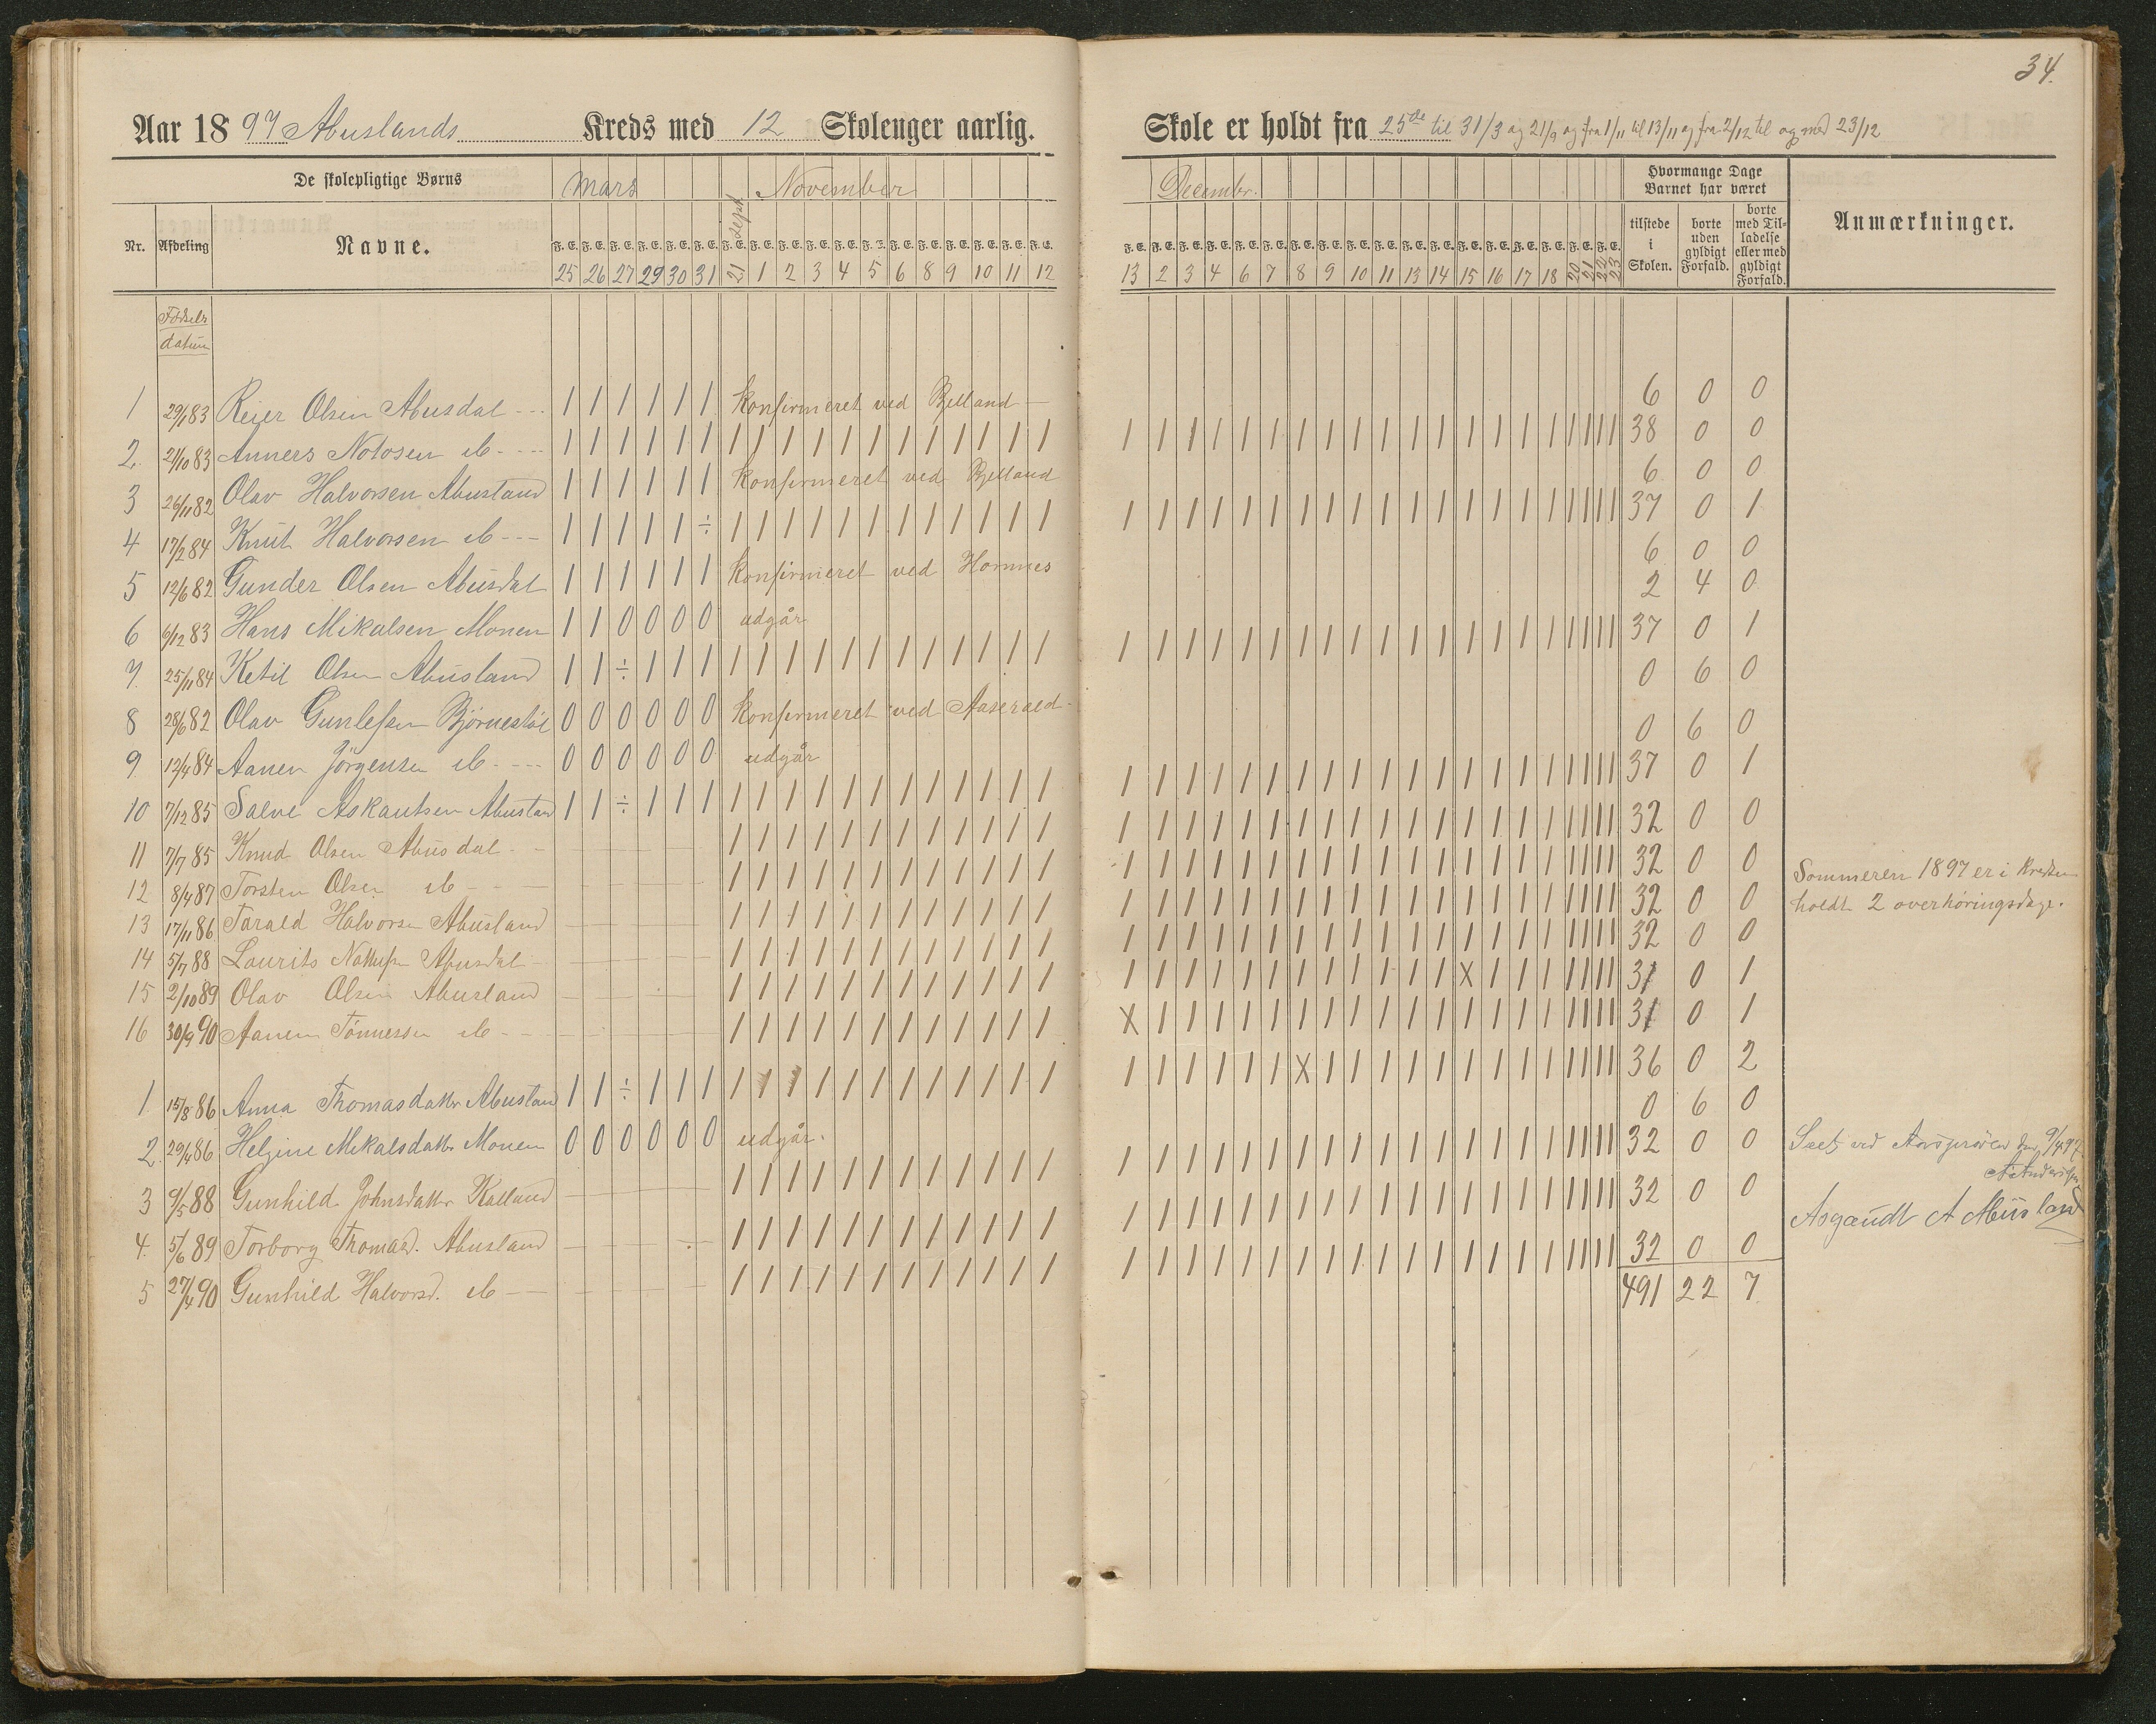 34.
Aar 1897 Abuslands Kreds med 12 Skolenger aarlig.
Skole er holdt fra 25de til 31/3 og 21/9 og fra 1/11 til 13/11 og fra 2/12 til og med 23/12
De skolepligtige Børns
Mars
21 Sept.
November
Decembr.
Hvormange Dage Barnet har været
Nr. Afdeling Navne.
F. E. F. E. F. E. F. E. F. E. F. E. F. E. F. E. F. E. F. E. F. E. F. E. F. E. F. E. F. E. F. E. F. E. F. E.
25 26 27 29 30 31 21 1 2 3 4 5 6 8 9 10 11 12
13 2 3 4 6 7 8 9 10 11 13 14 15 16 17 18 20 21 22 23
tilstede i Skolen.
borte uden gyldigt Forfald.
borte med Tilladelse eller med gyldigt Forfald.
Anmærkninger.
Fødsels
datum
1 29/1 83 Reier Olsen Abusdal - - - 1 1 1 1 1 1 konfirmeret ved Bjelland 6 0 0
2. 21/10 83 Anners Notosen ib - - - - 1 1 1 1 1 1 1 1 1 1 1 1 1 1 1 1 1 1 1 1 1 1 1 1 1 1 1 1 1 1 1 1 1 1 1 1 1 1 38 0 0
3 26/11 82 Olav Halvorsen Abusland 1 1 1 1 1 1 konfirmeret ved Bjelland 6 0 0
4 17/2 84 Knut Halvorsen ib - - - 1 1 1 1 1 ÷ 1 1 1 1 1 1 1 1 1 1 1 1 1 1 1 1 1 1 1 1 1 1 1 1 1 1 1 1 1 1 1 1 37 0 1
5 12/6 82 Gunder Olsen Abusdal 1 1 1 1 1 1 konfirmeret ved Hornnes 6 0 0
6 6/12 83 Hans Mikalsen Monen 1 1 0 0 0 0 udgår 2 4 0
7. 25/11 84 Ketil Olsen Abusland 1 1 ÷ 1 1 1 1 1 1 1 1 1 1 1 1 1 1 1 1 1 1 1 1 1 1 1 1 1 1 1 1 1 1 1 1 1 1 1 37 0 1
8 28/6 82 Olav Gunlefsen Bjørnestøl 0 0 0 0 0 0 konfirmeret ved Aaserald - 0 6 0
9 12/4 84 Aanen Jörgensen ib - - - - 0 0 0 0 0 0 udgår 0 6 0
10 7/12 85 Salve Askautsen Abusland 1 1 ÷ 1 1 1 1 1 1 1 1 1 1 1 1 1 1 1 1 1 1 1 1 1 1 1 1 1 1 1 1 1 1 1 1 1 1 1 37 0 1
11 7/7 85 Knud Olsen Abusdal - - 1 1 1 1 1 1 1 1 1 1 1 1 1 1 1 1 1 1 1 1 1 1 1 1 1 1 1 1 1 1 1 1 32 0 0
12 8/4 87 Torsten Olsen ib - - - 1 1 1 1 1 1 1 1 1 1 1 1 1 1 1 1 1 1 1 1 1 1 1 1 1 1 1 1 1 1 1 1 32 0 0
Sommeren 1897 er i Kredsen
13 17/11 86 Tarald Halvorsen Abusland 1 1 1 1 1 1 1 1 1 1 1 1 1 1 1 1 1 1 1 1 1 1 1 1 1 1 1 1 1 1 1 1 32 0 0
holdt 2 overhøringsdage.
14 5/7 88 Laurits Abusdal 1 1 1 1 1 1 1 1 1 1 1 1 1 1 1 1 1 1 1 1 1 1 1 1 1 1 1 1 1 1 1 1 32 0 0
15 2/10 89 Olav Olsen Abusland 1 1 1 1 1 1 1 1 1 1 1 1 1 1 1 1 1 1 1 1 1 1 1 1 X 1 1 1 1 1 1 1 31 0 1
16 30/9 90 Aanen Tönnessen ib - - 1 1 1 1 1 1 1 1 1 1 1 1 X 1 1 1 1 1 1 1 1 1 1 1 1 1 1 1 1 1 1 1 31 0 1
1. 15/8 86 Anna Thomasdatter Abusland 1 1 ÷ 1 1 1 1 1 1 1 1 1 1 1 1 1 1 1 1 1 1 1 1 X 1 1 1 1 1 1 1 1 1 1 1 1 36 0 2
2. 29/4 86 Helgine Mikalsdatter Monen 0 0 0 0 0 0 udgår. 0 6 0
3 9/5 88 Gunhild Johnsdatter Kalland 1 1 1 1 1 1 1 1 1 1 1 1 1 1 1 1 1 1 1 1 1 1 1 1 1 1 1 1 1 1 1 1 32 0 0
Seet ved Aarsprøven den 9/4 97
4. 5/6 89 Torborg Thomasd. Abusland 1 1 1 1 1 1 1 1 1 1 1 1 1 1 1 1 1 1 1 1 1 1 1 1 1 1 1 1 1 1 1 1 32 0 0
Asgaudt A Abusland
5 27/4 90 Gunhild Halvorsd. ib - - 1 1 1 1 1 1 1 1 1 1 1 1 1 1 1 1 1 1 1 1 1 1 1 1 1 1 1 1 1 1 1 1 32 0 0
491 22 7